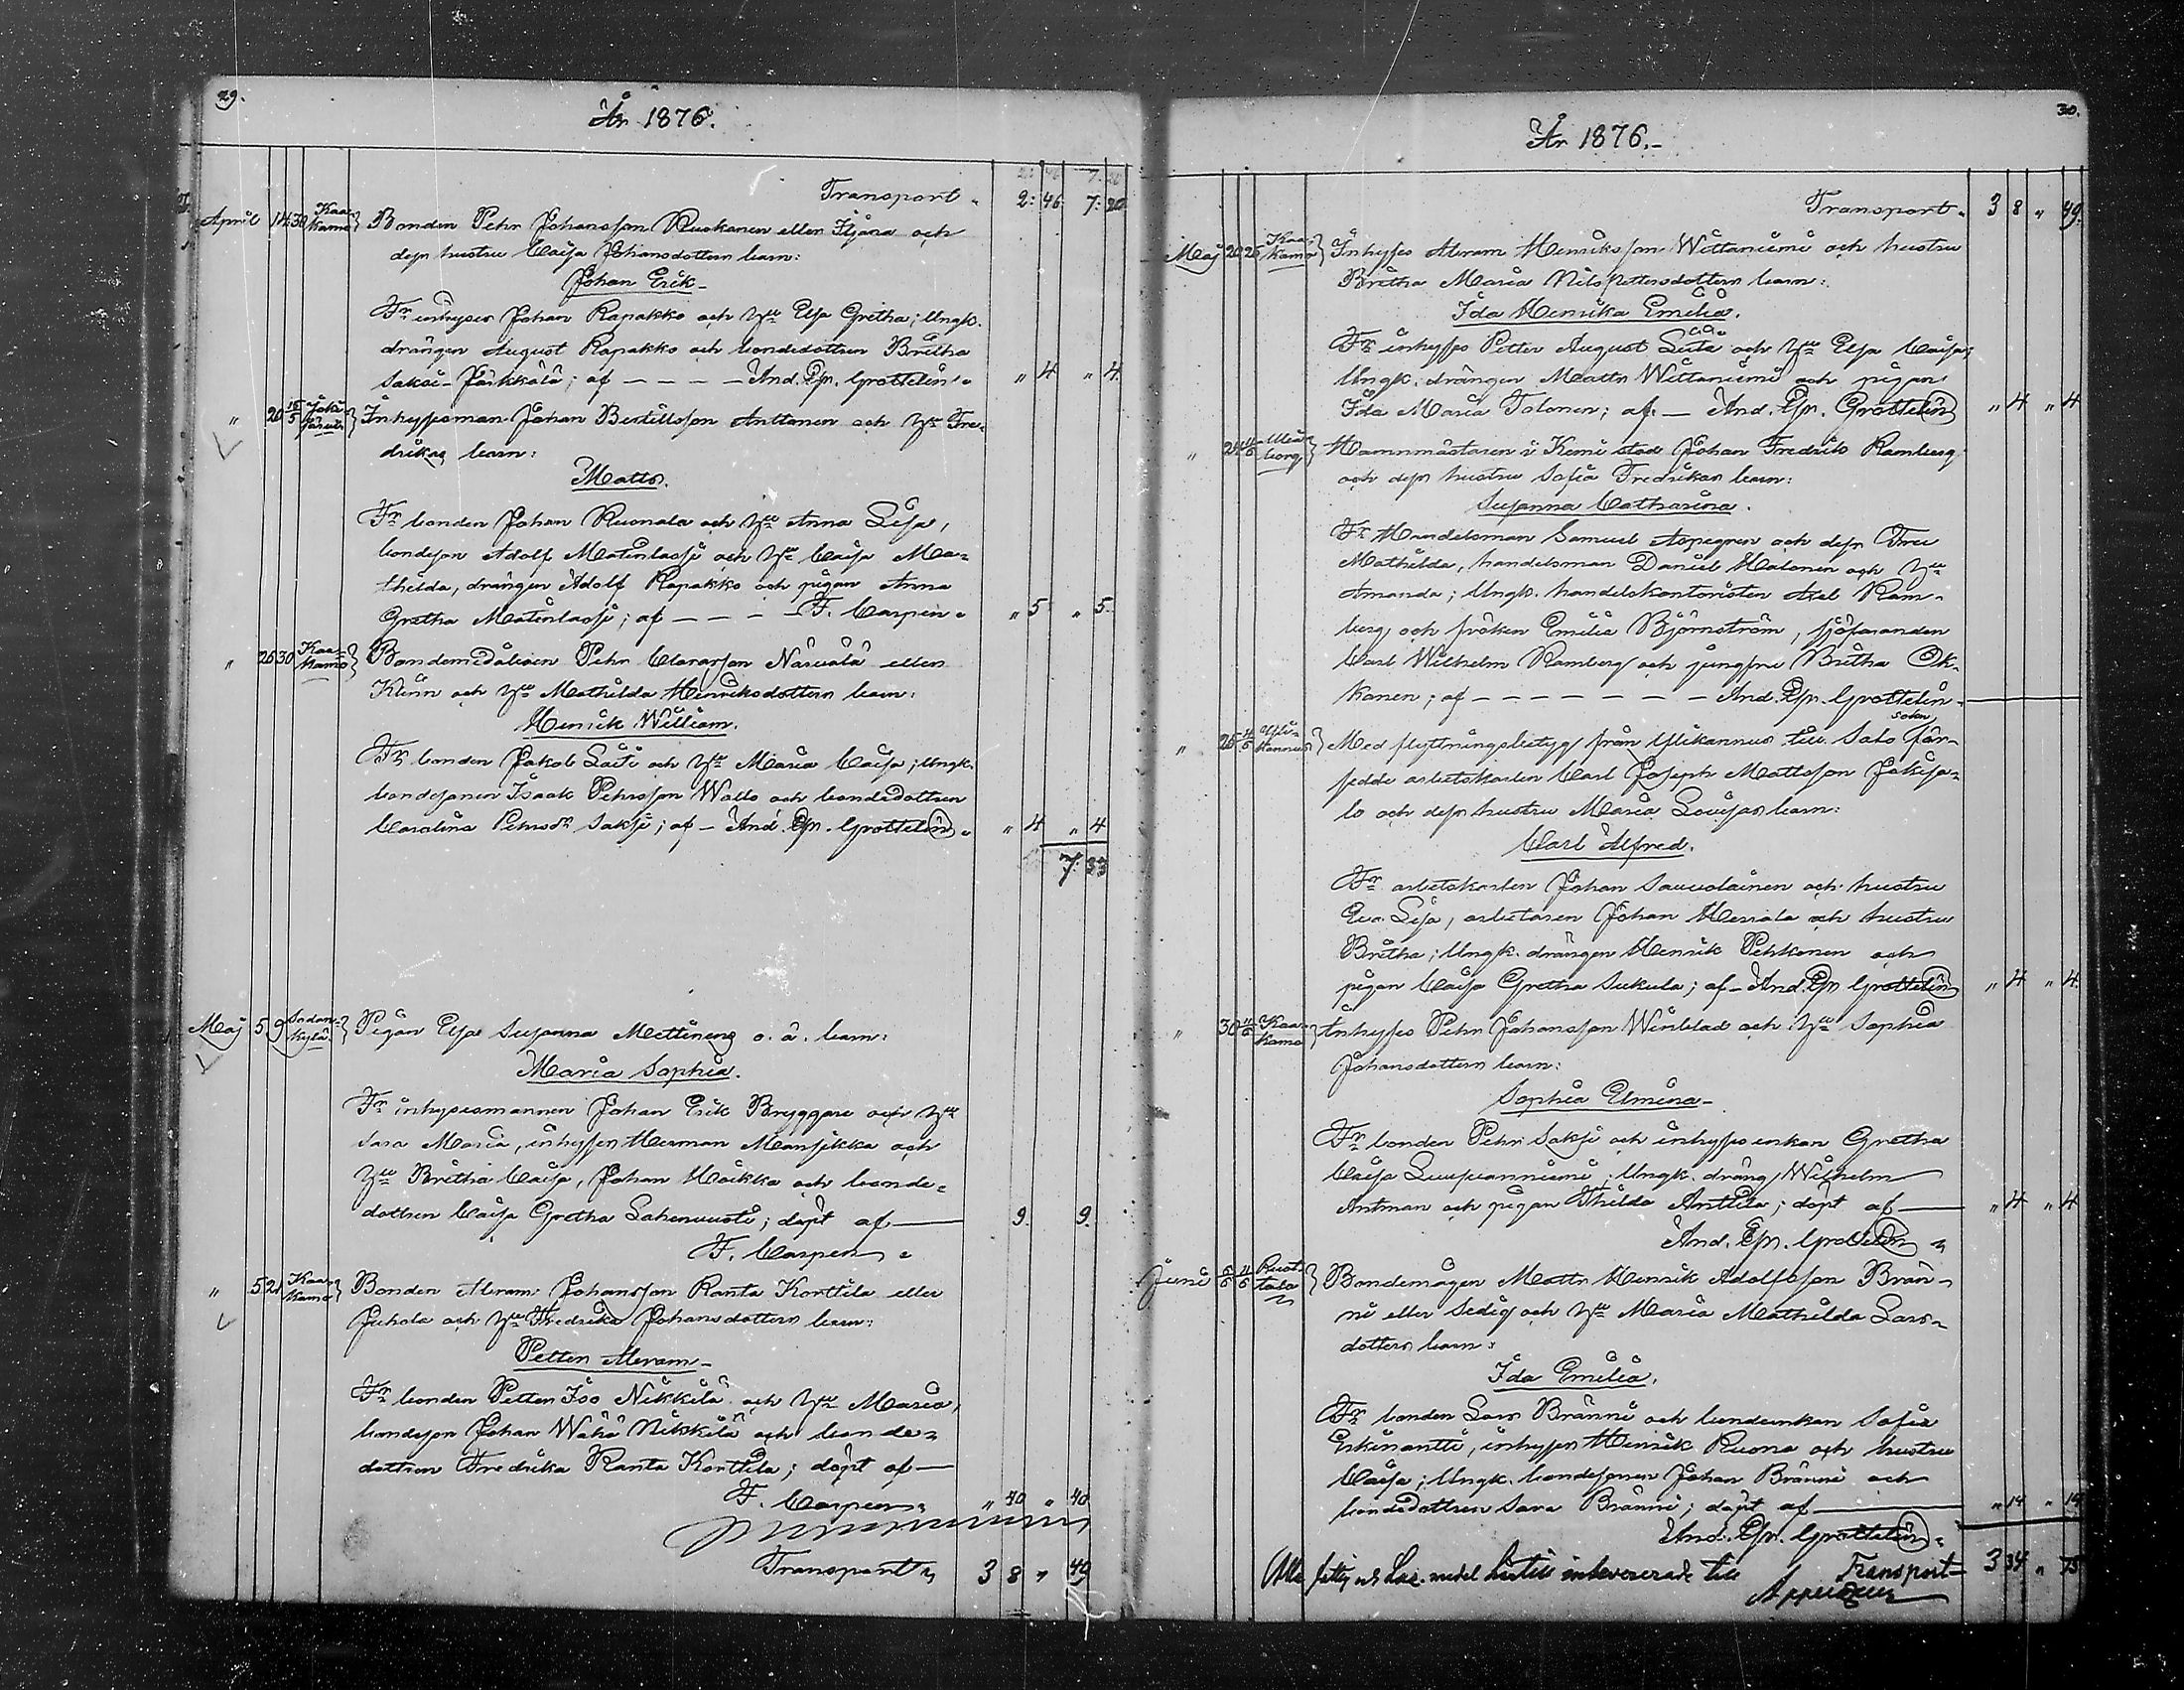 29.
År 1876.
Transport. 2: 46 7: 20
April 14 30 Kaakamo Bonden Pehr Johansson Ruokanen eller Iljana och
dess hustru Caisa Johansdotters barn:
Johan Erik
Fr inhyses Johan Rapakko och h:u Elsa Gretha; Ungk.
drängen August Rapakko och bondedottren Britha
Saksi-Pärkkälä; af And. Esn. Grottelin " 4 " 4
" 20 15/5 Inhysesman Johan Bertillsson Anttanen och h:u Fre-
drikas barn:
Matts.
Fr bonden Johan Ruonala och h:u Anna Lisa,
bondeson Adolf Matinlassi och h:u Caisa Ma-
thilda, drängen Adolf Rapakko och pigan Anna
Gretha Matinlassi; af F. Carpen " 5 " 5
" 26 30 Kaakamo Clarasson Närvälä eller
Kinn och h:u Mathilda Henriksdotters barn:
Henrik William.
Fr bonden Jakob Laiti och h:u Maria Caisa; Ungk.
bondesonen Isaak Pehrsson Wallo och bondedottren
Carolina Pehrsdr Saksi; af And. Esn. Grottelin " 4 " 4
7: 33
Maj 5 9 Sodankylä Pigan Elsa Susanna Mettinens o. ä. barn:
Maria Sophia.
Fr inhysesmannen Johan Erik Bryggare och h:u
Sara Maria, inhyses Herman Mansikka och
h:u Britha Caisa, Johan Haikka och bonde-
dottren Caisa Gretha Lahenvuoti; döpt af 9. 9.
F. Carpen
" 5 21 Kaakamo Bonden Abram Johansson Ranta Korttila eller
Juhola och h:u Fredrika Johansdotters barn:
Petter Abram
Fr bonden Petter Iso Nikkilä och h:u Maria,
bondeson Johan Wähä Nikkilä och bonde-
dottren Fredrika Ranta Korttila; döpt af
F. Carpen " 40 " 40
Transport 3 8 " 49
30.
År 1876.
Transport. 3 8 " 49.
Maj 20 25 Kaakamo Inhyses Abram Henriksson Wittaniemi och hustru
Britha Maria Nilspettersdotters barn:
Ida Henrika Emelia.
Fr inhyses Petter August Luita och h:u Elsa Caisa;
Ungk. drängen Matts Wittaniemi och pigan
Ida Maria Tolonen; af And. Esn. Grottelin " 4 " 4
" 24 Uleåborg Hamnmästaren i Kemi stad Johan Fredrik Ramberg
och dess hustru Sofia Fredrikas barn:
Susanna Catharina.
Fr Handelsman Samuel Aspegren och dess Fru
Mathilda, handelsman Daniel Halonen och h:u
Amanda; Ungk. handelskontoristen Axel Ram-
berg och fröken Emilia Björnström, sjöfaranden
Carl Wilhelm Ramberg och jungfru Britha Ok-
kanen; af And. Esn. Grottelin
" 25 Ylikannus Med flyttningsbetyg från Ylikannus till Salo socken för-
sedde arbetskarlen Carl Joseph Mattsson Jokisa-
lo och dess hustru Maria Lovisas barn:
Carl Alfred.
Fr arbetskarlen Johan Sauvolainen och hustru
Eva Lisa, arbetaren Johan Heriala och hustru
Britha; Ungk. drängen Henrik Pehkonen och
pigan Caisa Gretha Sukula; af And. Esn Grottelin " 4 " 4
" 30 Kaakamo Inhyses Pehr Johansson Winblad och h:u Sophia
Johansdotters barn:
Sophia Elmina
Fr bonden Pehr Saksi och inhyses enkan Gretha
Caisa Luupuanniemi; Ungk. dräng Wilhelm
Antman och pigan Thilda Anttila; döpt af " 4 " 4
And. Esn. Grottelin
Juni Ruottala Bondemågen Matts Henrik Adolfsson Brän-
ni eller Sedig och h:u Maria Mathilda Lars-
dotters barn:
Ida Emilia.
Fr bonden Lars Bränni och bondeenkan Sofia
Erkinantti, inhyses Henrik Ruona och hustru
Caisa; Ungk. bondesonen Johan Bränni och
bondedottren Sara Bränni; döpt af " 14 " 14
And. Esn. Grottelin
Transport 3 34 " 75